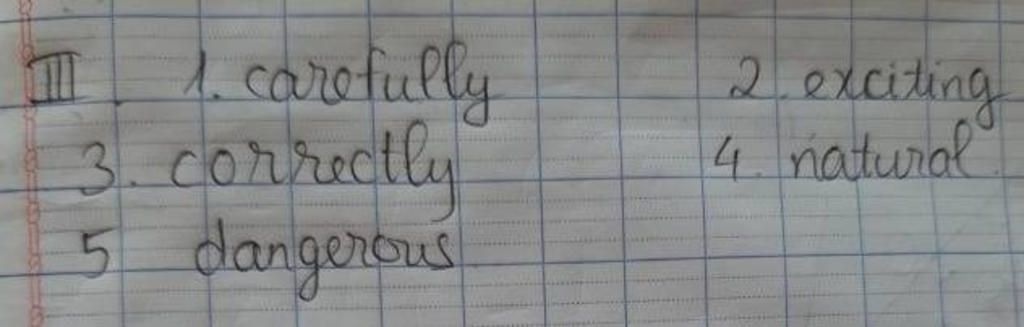 III 1. carefully 2. exciting
3. correctly 4. natural
5 dangerous